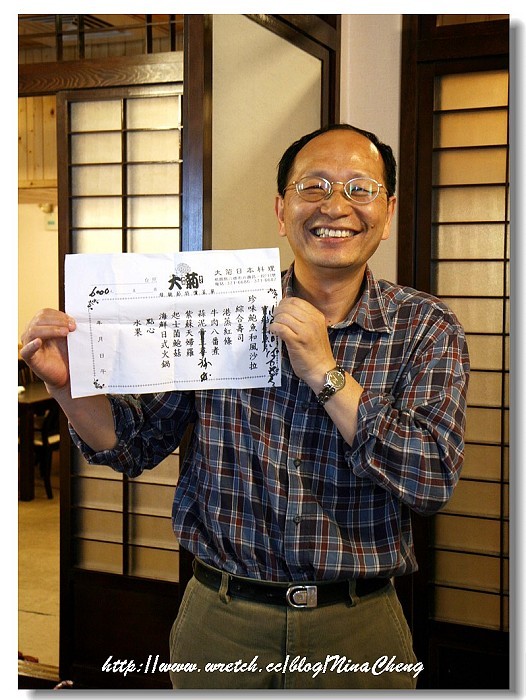 大菊日本料理
大菊
珍味鮑魚和風沙拉
綜合壽司
港蒸紅條
牛肉八番煮
蒜泥
紫蘇天婦羅
起士菌鮑菇
海鮮日式火鍋
點心
水果
年 月 日
6000
http://www.wretch.cc/blog/NinaCheng